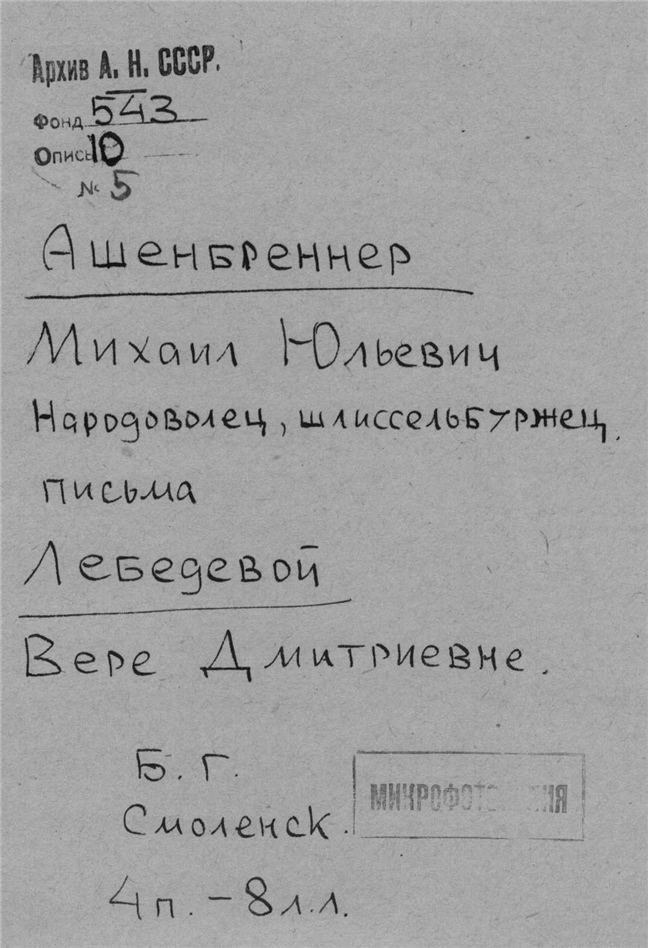 Архив А. Н. СССР.
Фонд 543
Опись 10
№ 5
Ашенбреннер
Михаил Юльевич
Народоволец, шлиссельбуржец.
письма
Лебедевой
Вере Дмитриевне.
Б. Г.
Смоленск.
4 п. – 8 л.л.